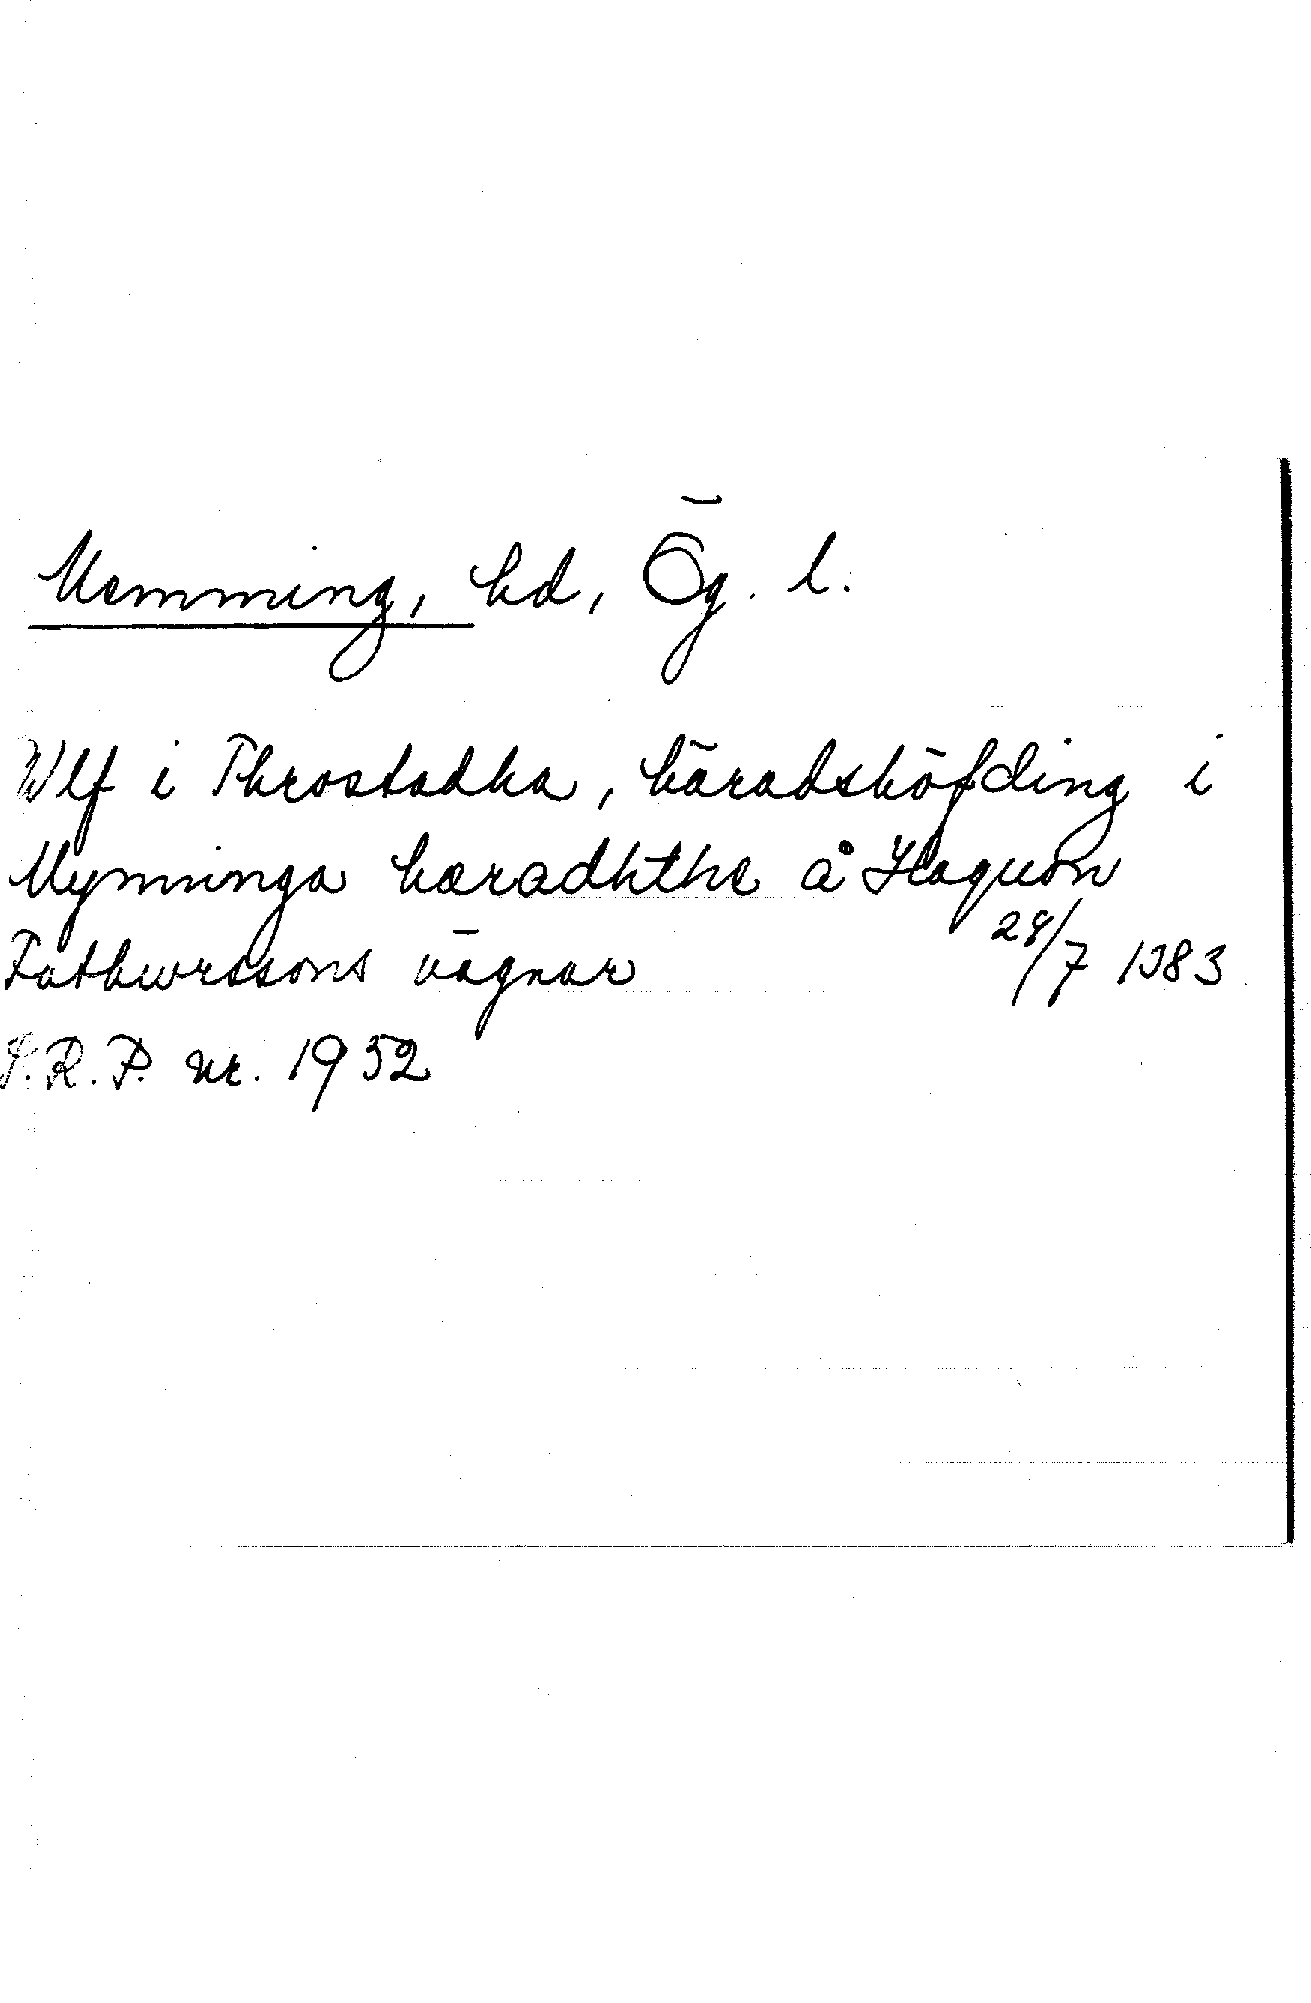 Memming, hd, Ög. l.
Wlf i Throstadha, häradshöfding i
Myninga hæradhthe å Haquon
Fathurssons vägnar 28/7 1383
S.R.P. nr. 1952